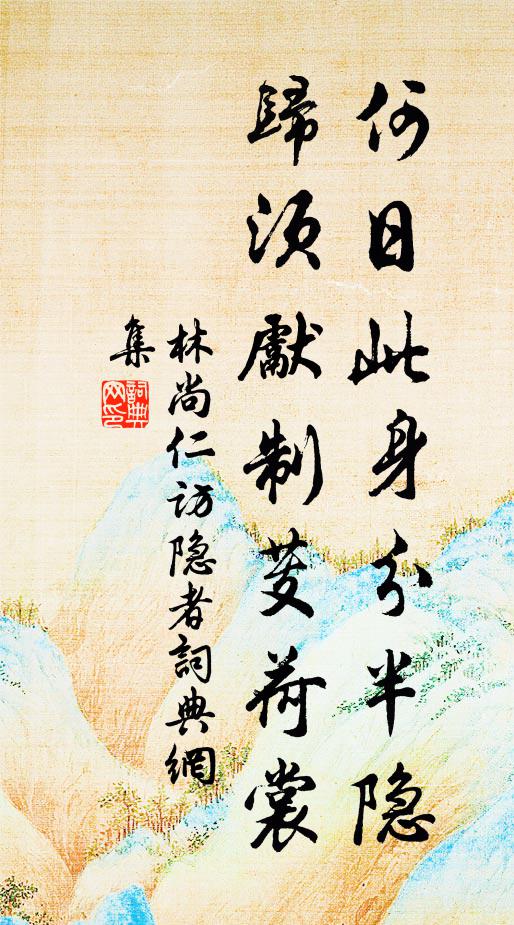 何日此身分半隐
歸須獻制芰荷裳
林尚仁访隐者詞典網
集
詞典網印